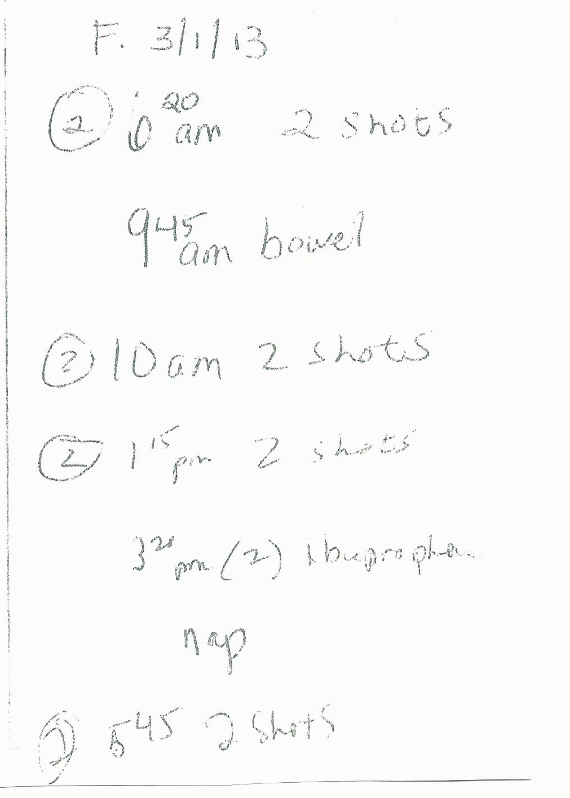 F. 3/1/13
② 6 20 am 2 shots
9 45 am bowel
② 10 am 2 shots
② 1 15 pm 2 shots
3 20 pm (2) Ibuprophen
nap
② 5 45 2 shots